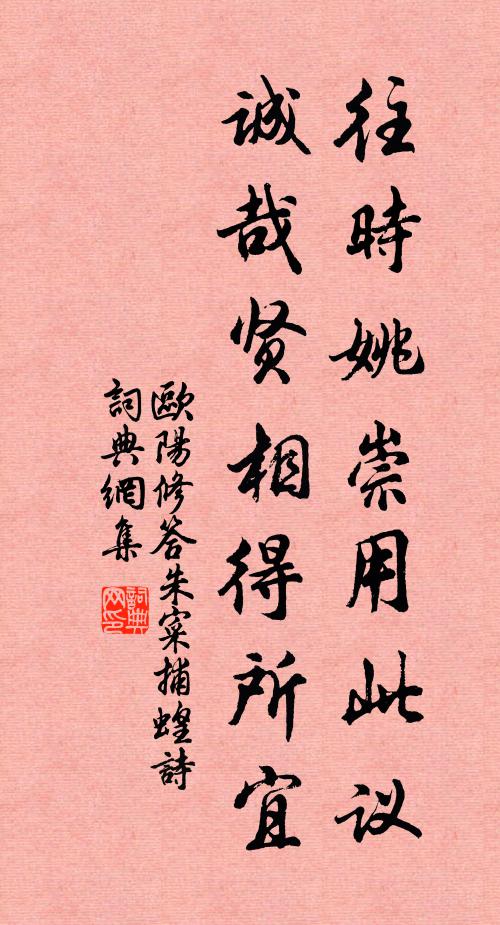 往時姚崇用此议
诚哉贤相得所宜
歐陽修答朱寀捕蝗詩
詞典網集
詞典网印